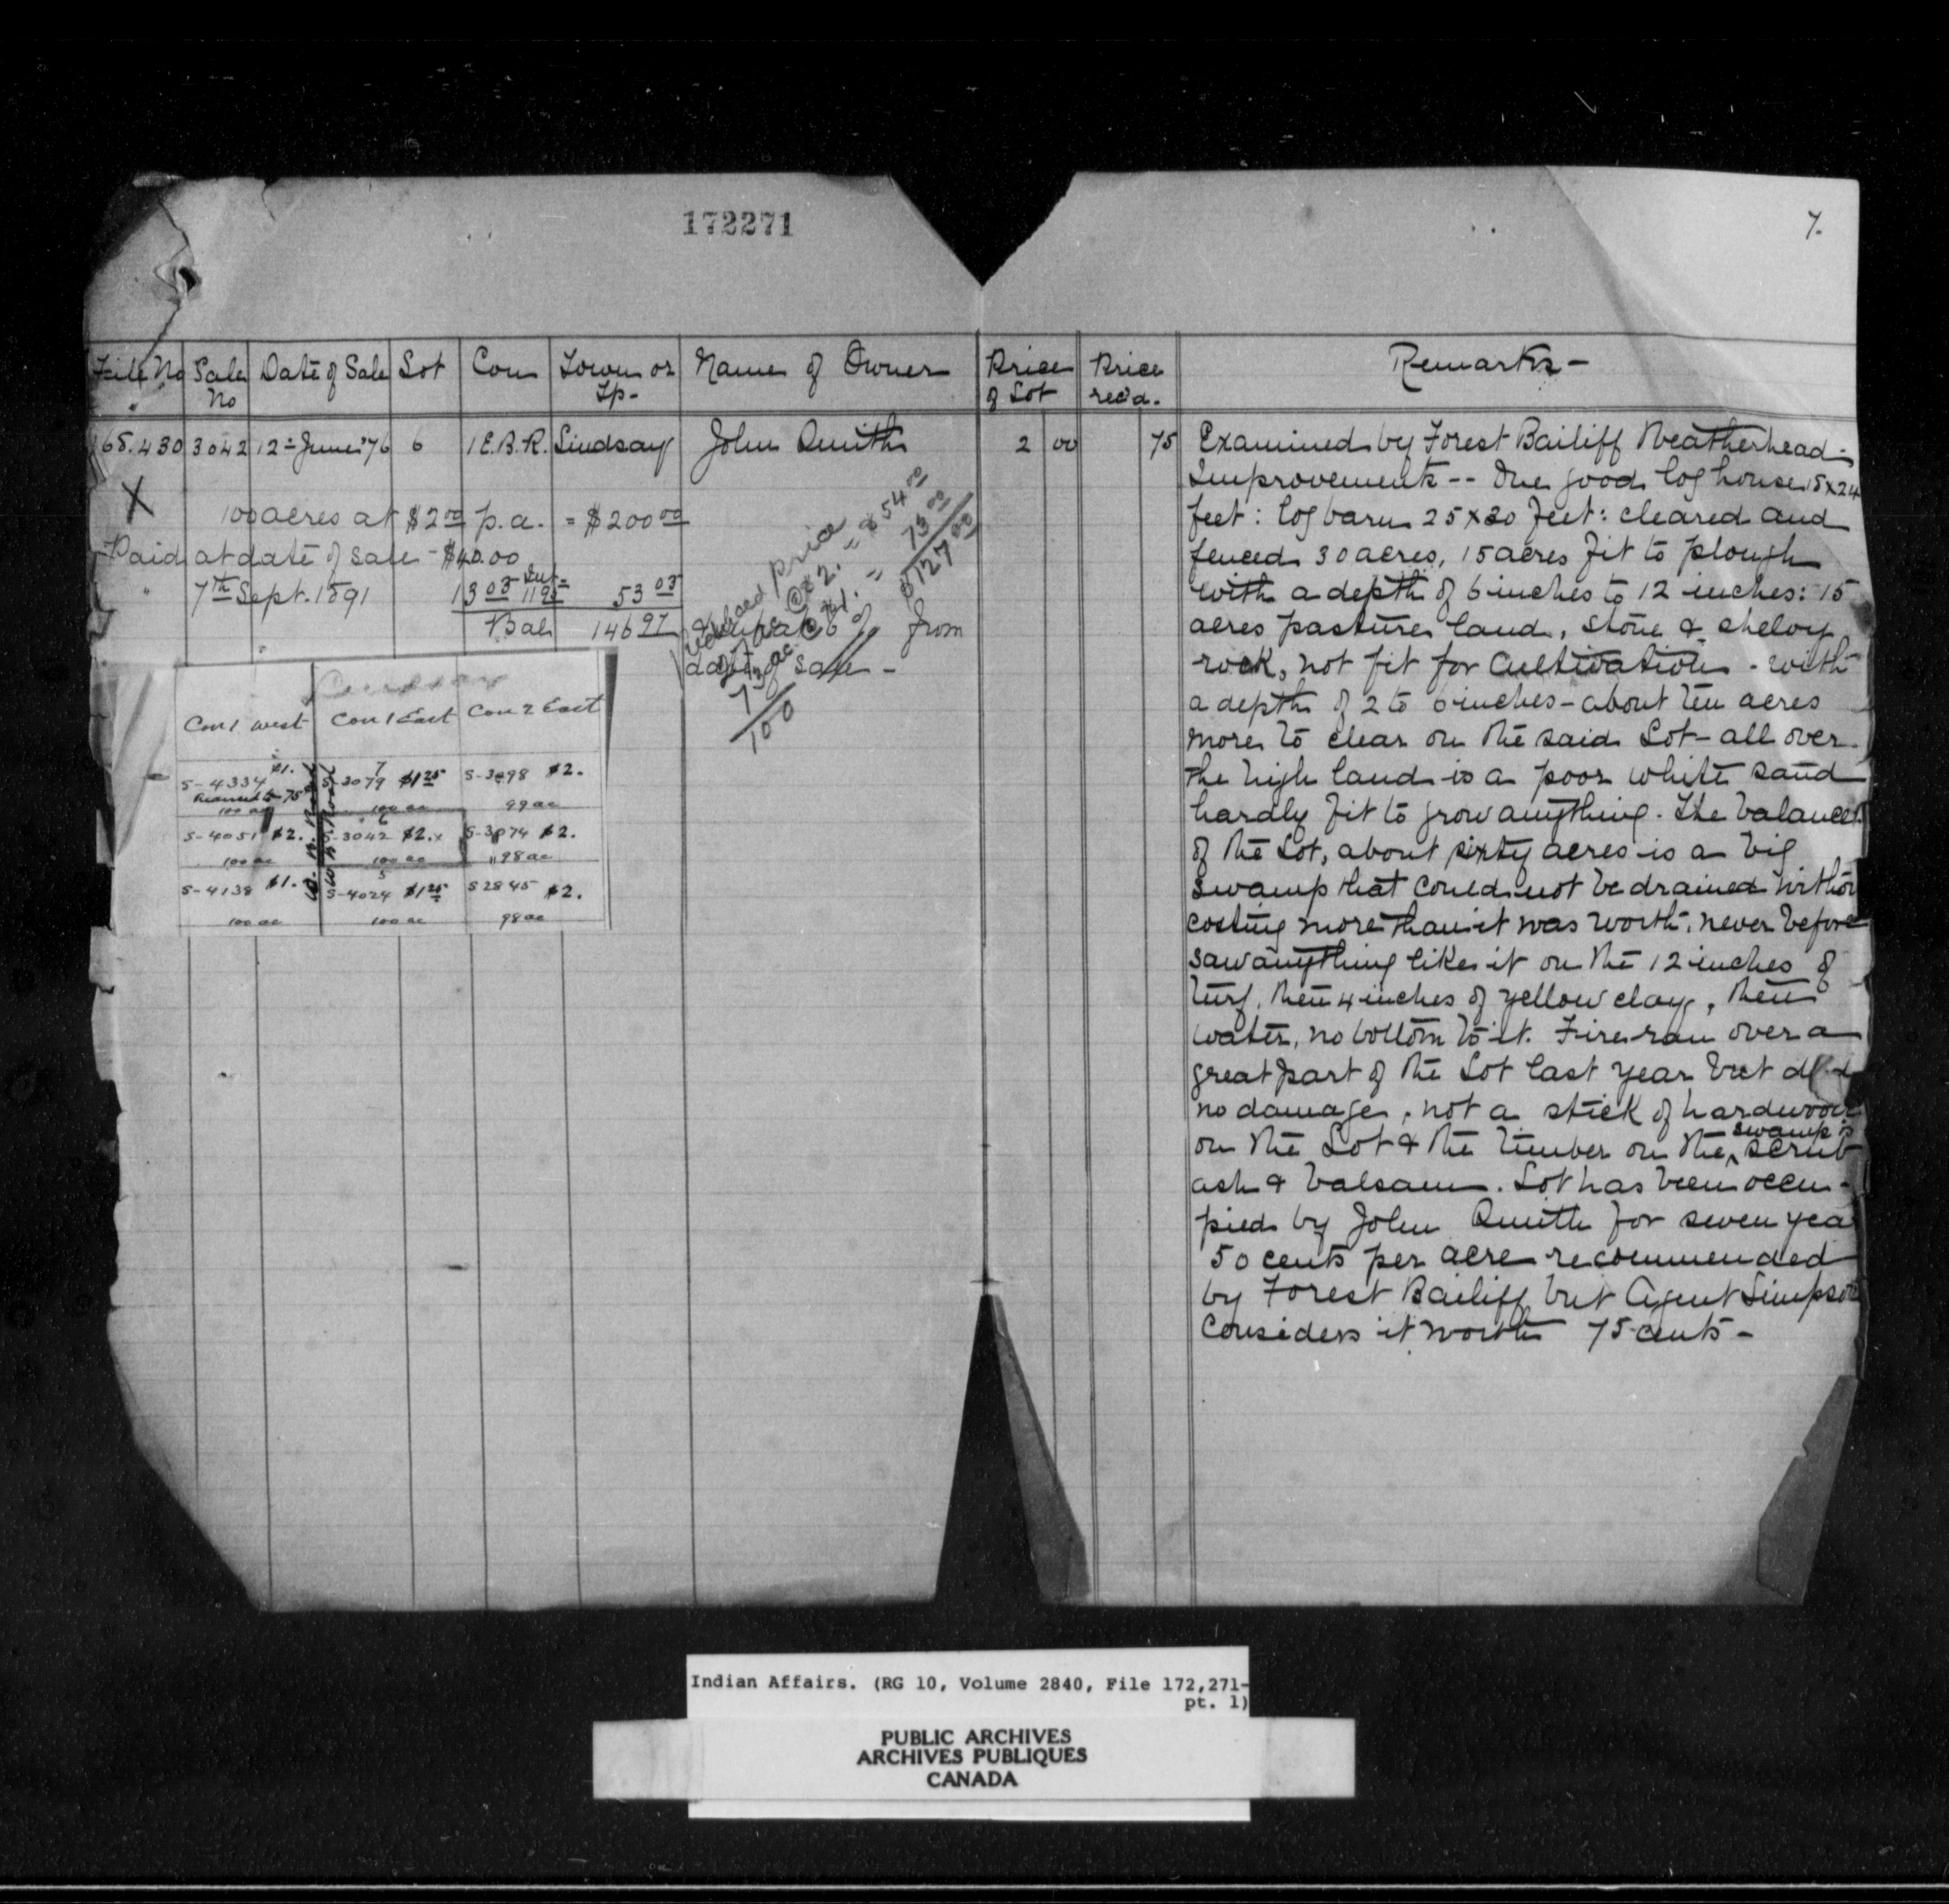 172271
7.
File No
Sale No
Date of Sale
Lot
Con
Town or Tp-
Name of Owner
Price of Lot
Price rec'd.
Remarks -
65.430 3042 12th June '76 6 1 E.B.R. Lindsay John Smith 2 00 75
X
100 acres at $2 00 p.a. = $200 00
Paid at date of sale - $40.00
" 7th Sept. 1891 13 05 Int= 11 95 53 03
Bal 146 97 6 % from
date of sale -
Reduced price
27 ac @ $2. = $54 00
73 ac @ $1. = 73 00
100 $127 00
Lindsay
Con 1 West Con 1 East Con 2 East
S-4334 $1. 7 S-3079 $1 25 S-3098 $2.
Reduced to 75
100 ac 100 ac 99 ac
S-4051 $2. 6 S-3042 $2. x S-3074 $2.
100 ac 100 ac 98 ac
S-4138 $1. 5 S-4024 $1 25 S 2845 $2.
100 ac 100 ac 98 ac
Examined by Forest Bailiff Weatherhead -
Improvements -- One good log house 15x24
feet: log barn 25x30 feet: cleared and
fenced 30 acres, 15 acres fit to plough
with a depth of 6 inches to 12 inches: 15
acres pasture land, stone & shelvy
rock, not fit for cultivation - with
a depth of 2 to 6 inches - about ten acres
more to clear on the said Lot - all over
the high land is a poor white sand
hardly fit to grow anything. The balance
of the Lot, about sixty acres is a big
swamp that could not be drained without
costing more than it was worth, never before
saw anything like it on the 12 inches of
turf, then 4 inches of yellow clay, then
water, no bottom to it. Fire ran over a
great part of the Lot last year but did
no damage, not a stick of hardwood
on the Lot & the timber on the swamp is scrub
ash & balsam. Lot has been occu-
pied by John Smith for seven yea
50 cents per acre recommended
by Forest Bailiff but Agent Simpson
considers it worth 75 cents -
Indian Affairs. (RG 10, Volume 2840, File 172,271-
pt. 1)
PUBLIC ARCHIVES
ARCHIVES PUBLIQUES
CANADA